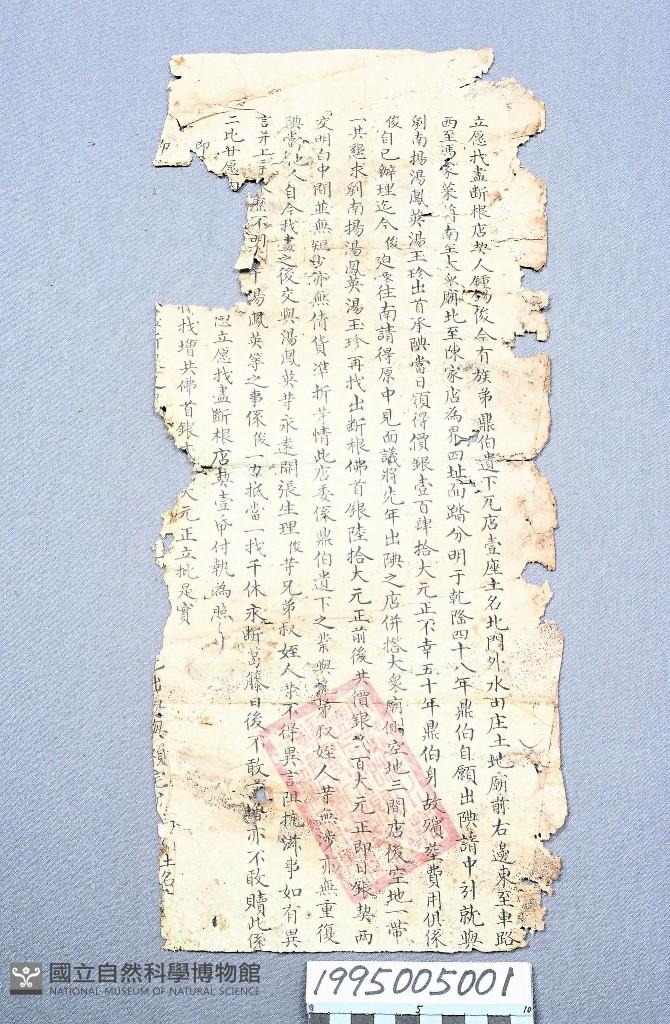 立愿找盡斷根店契人鍾錫俊仝有族弟鼎伯遺下瓦店壹座土名北門外水田庄土地廟前右邊東至車路
西至馮家菜 南至大衆廟北至陳家店為界四址面踏分明于乾隆四十八年鼎伯自願出典請中引就與
劉南揚湯鳳英湯玉珍出首承典當日領得價銀壹百肆拾大元正不幸五十年鼎伯身故殯葬費用俱係
俊自己辦理迄今俊 往南請得原中見面議將先年出典之店併搭大衆廟側空地三間店後空地一帶
一共懇求劉南揚湯鳳英湯玉珍再找出斷根佛首銀陸拾大元正前後共價銀 百大元正即日銀契兩
交明白中間並無短少亦無債貨準折等情此店委係鼎伯遺下之業與 叔姪人等無涉亦無重復
典當他人自今找盡之後交與湯鳳英等永遠開張生理俊等兄弟叔姪人等不得異言阻抗滋事如有異
言并上手 不明 湯鳳英等之事係俊一力抵當一找千休永斷葛藤日後不敢 亦不敢贖此係
二比甘愿 立愿找盡斷根店契壹帋付執為照
即 找增共佛首銀 大元正立批是實
即
土名
國立自然科學博物館
NATIONAL MUSEUM OF NATURAL SCIENCE
1995005001
5 10